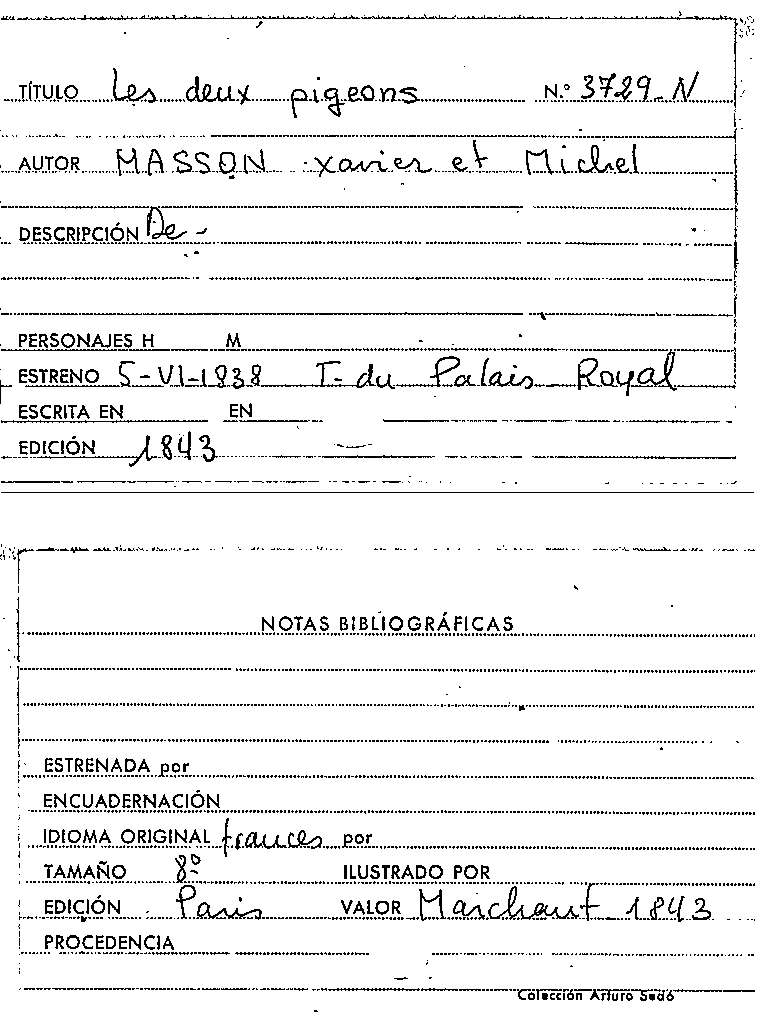 TÍTULO Les deux pigeons N.º 3729-N
AUTOR MASSON Xavier et Michel
DESCRIPCIÓN De-
PERSONAJES H M
ESTRENO 5-VI-1838 T. du Palais Royal
ESCRITA EN EN
EDICIÓN 1843
NOTAS BIBLIOGRÁFICAS
ESTRENADA por
ENCUADERNACIÓN
IDIOMA ORIGINAL frances por
TAMAÑO 8º ILUSTRADO POR
EDICIÓN Paris VALOR Marchant 1843
PROCEDENCIA
Colección Arturo Sedó